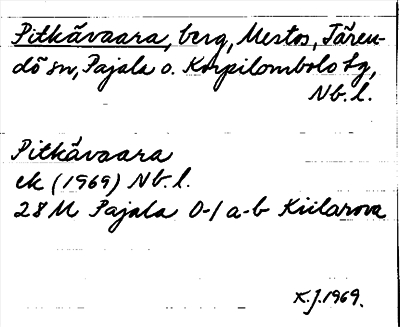 Pitkävaara, berg, Mestos, Tären-
dö sn, Pajala o. Korpilombolo tg,
Nb. l.
Pitkävaara
ek (1969) Nb. l.
28 M Pajala 0-1 a-b Kiilarova
K.J. 1969.